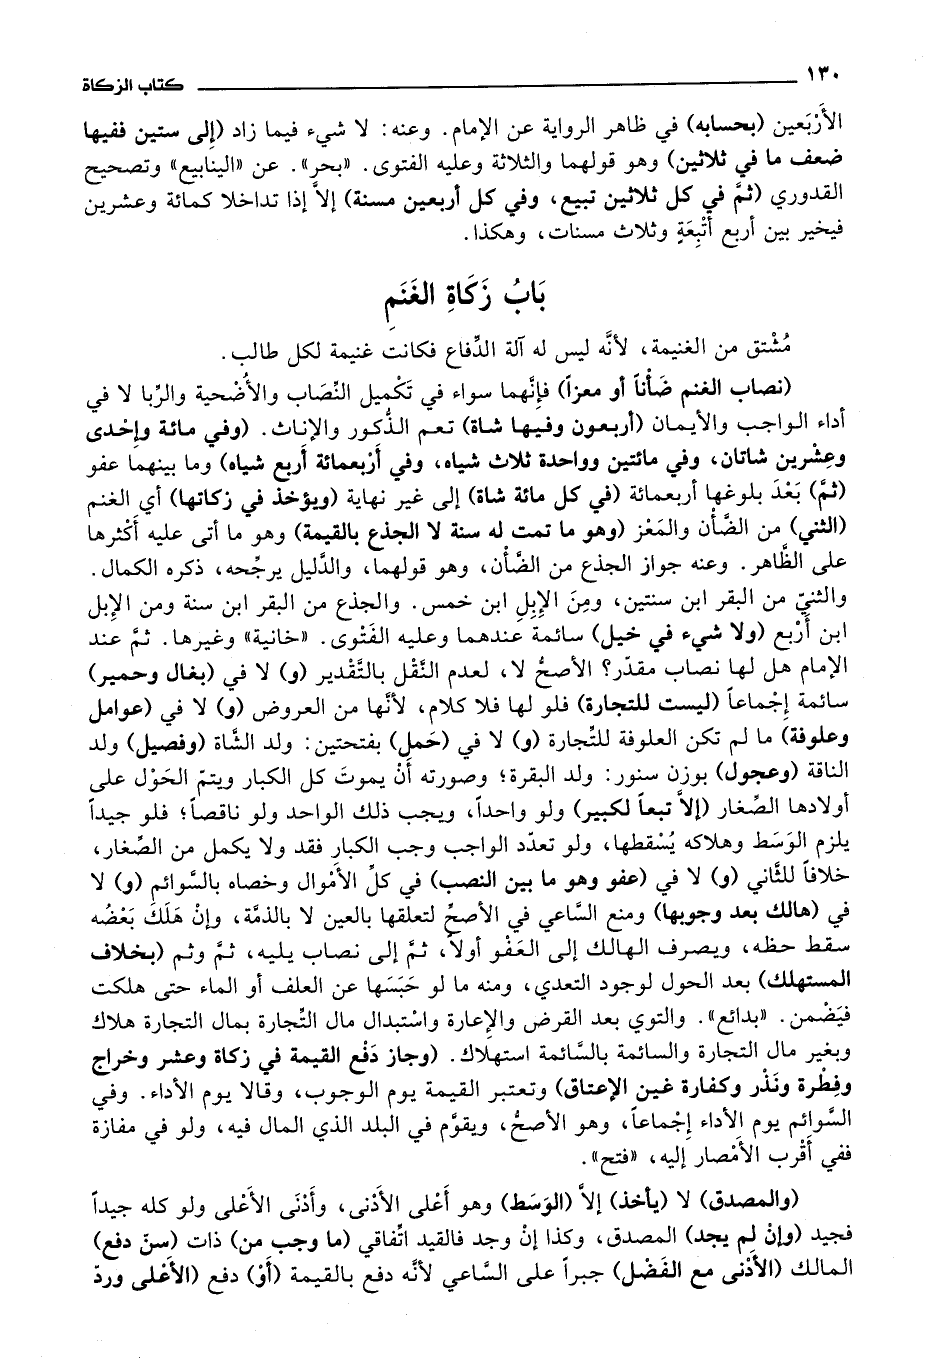 ١٣٠ كتاب الزكاة
الأَرْبَعين (بحسابه) في ظاهر الرواية عن الإمام. وعنه: لا شيء فيما زاد (إلى ستين ففيها
ضعف ما في ثلاثين) وهو قولهما والثلاثة وعليه الفتوى. «بحر». عن «الينابيع» وتصحيح
القدوري (ثمَّ في كل ثلاثين تبيع، وفي كل أربعين مسنة) إلاَّ إذا تداخلا كمائة وعشرين
فيخير بين أربع أَتْبِعَةٍ وثلاث مسنات، وهكذا.
بَابُ زَكَاةِ الغَنَمِ
مُشْتق من الغنيمة، لأنَّه ليس له آلة الدِّفاع فكانت غنيمة لكل طالب.
(نصاب الغنم ضَأْناً أو معزاً) فإِنَّهما سواء في تَكْميل النِّصاب والأُضْحية والرِّبا لا في
أداء الواجب والأيمان (أربعون وفيها شاة) تعم الذُّكور والإناث. (وفي مائة وإِحْدى
وعِشْرين شاتان، وفي مائتين وواحدة ثلاث شياه، وفي أَرْبعمائة أربع شياه) وما بينهما عفو
(ثمَّ) بَعْدَ بلوغها أربعمائة (في كل مائة شاة) إلى غير نهاية (ويؤخذ في زكاتها) أي الغنم
(الثني) من الضَّأْن والمَعْز (وهو ما تمت له سنة لا الجذع بالقيمة) وهو ما أتى عليه أَكْثرها
على الظَّاهر. وعنه جواز الجذع من الضَّأْن، وهو قولهما، والدَّليل يرجِّحه، ذكره الكمال.
والثنيّ من البقر ابن سنتين، ومِنَ الإِبِلِ ابن خمس. والجذع من البقر ابن سنة ومن الإِبل
ابن أَرْبع (ولا شيء في خيل) سائمة عندهما وعليه الفَتْوى. «خانية» وغيرها. ثمَّ عند
الإمام هل لها نصاب مقدّر؟ الأصحُّ لا، لعدم النَّقْل بالتَّقْدير (و) لا في (بغال وحمير)
سائمة إِجْماعاً (ليست للتجارة) فلو لها فلا كلام، لأنَّها من العروض (و) لا في (عوامل
وعلوفة) ما لم تكن العلوفة للتِّجارة (و) لا في (حَمل) بفتحتين: ولد الشَّاة (وفصيل) ولد
الناقة (وعجول) بوزن سنور: ولد البقرة؛ وصورته أَنْ يموتَ كل الكبار ويتمّ الحَوْل على
أولادها الصِّغار (إلاَّ تبعاً لكبير) ولو واحداً، ويجب ذلك الواحد ولو ناقصاً؛ فلو جيداً
يلزم الوَسَط وهلاكه يُسْقطها، ولو تعدّد الواجب وجب الكبار فقد ولا يكمل من الصِّغار،
خلافاً للثَّاني (و) لا في (عفو وهو ما بين النصب) في كلِّ الأَمْوال وخصاه بالسَّوائم (و) لا
في (هالك بعد وجوبها) ومنع السَّاعي في الأصحِّ لتعلقها بالعين لا بالذمَّة، وإِنْ هَلَكَ بَعْضُه
سقط حظه، ويصرف الهالك إلى العَفْو أولاً، ثمَّ إلى نصاب يليه، ثمَّ وثم (بخلاف
المستهلك) بعد الحول لوجود التعدي، ومنه ما لو حَبَسَها عن العلف أو الماء حتى هلكت
فيَضْمن. «بدائع». والتوي بعد القرض والإعارة واسْتبدال مال التِّجارة بمال التجارة هلاك
وبغير مال التجارة والسائمة بالسَّائمة استهلاك. (وجاز دَفْع القيمة في زكاة وعشر وخراج
وفِطْرة ونَذْر وكفارة غير الإعتاق) وتعتبر القيمة يوم الوجوب، وقالا يوم الأداء. وفي
السَّوائم يوم الأداء إِجْماعاً، وهو الأصحُّ، ويقوَّم في البلد الذي المال فيه، ولو في مفازة
ففي أَقْرب الأَمْصار إليه، «فتح».
(والمصدق) لا (يأخذ) إلاَّ (الوَسَط) وهو أَعْلى الأَدْنى، وأَدْنَى الأَعْلى ولو كله جيداً
فجيد (وإِنْ لم يجد) المصدق، وكذا إنْ وجد فالقيد اتِّفاقي (ما وجب من) ذات (سنّ دفع)
المالك (الأَدْنى مع الفَضْل) جبراً على السَّاعي لأنَّه دفع بالقيمة (أَوْ) دفع (الأَعْلى وردّ